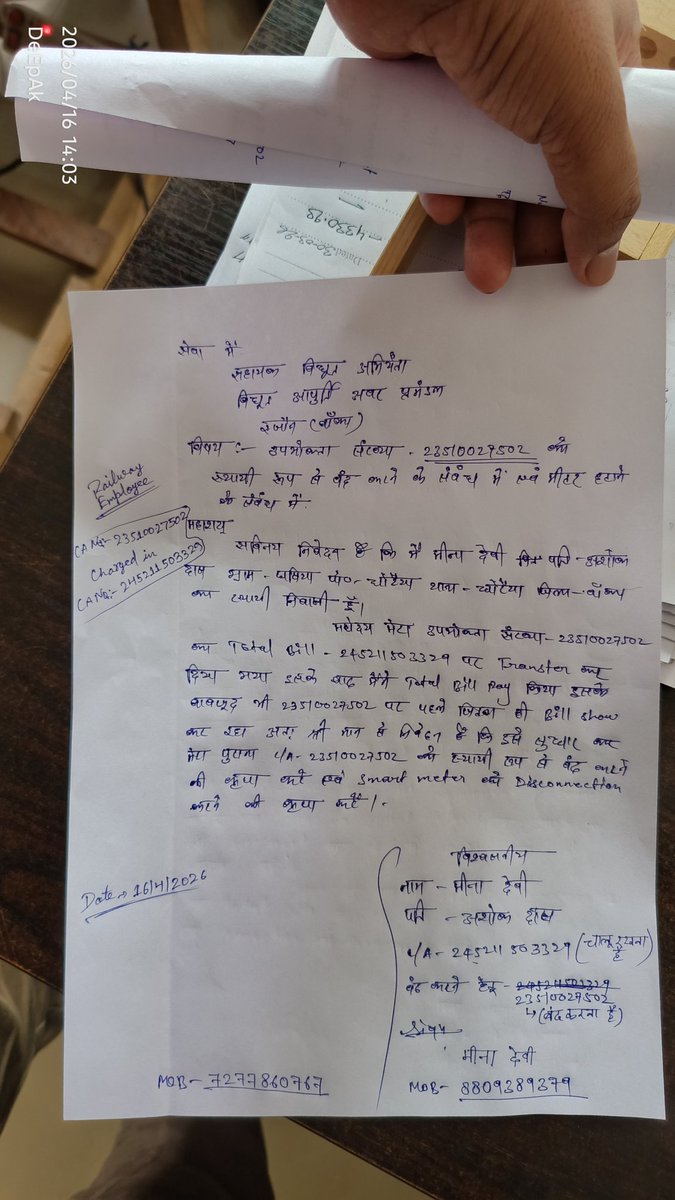 2026/04/16 14:03
DeEpAk
Dated 30-03-26
4330.28
सेवा में
सहायक विधुत अभियंता
विधुत आपुर्ति अवर प्रमंडल
रजौन (बाँका)
विषय :- उपभोक्ता संख्या - 23510027502 को
स्थायी रूप से बंद करने के संबंध में एवं मीटर हटाने
के संबंध में.
Railway
Employee
CA No:- 23510027502
Charged in
CA No:- 245211503329
महाशय
सविनय निवेदन है कि मैं मीना देवी पति - अशोक
दास ग्राम - पो०- थाना - जिला - बाँका
का स्थायी निवासी हूँ।
महोदय मेरा उपभोक्ता संख्या - 23510027502
का Total Bill - 245211503329 पर Transfer कर
दिया गया इसके बाद मैंने Total Bill Pay किया इसके
बावजूद भी 23510027502 पर पहले जितना ही Bill show
कर रहा अतः श्री मान से निवेदन है कि इसे सुधार कर
मेरा पुराना C/A - 23510027502 को स्थायी रूप से बंद करने
की कृपा करें एवं smart meter को Disconnection
करने की कृपा करें।
Date → 16/4/2026
विश्वासनीय
नाम - मीना देवी
पति - अशोक दास
C/A - 245211503329 (चालू रखना है)
बंद करने हेतू - 245211503329
23510027502
↳ (बंद करना है)
मीना देवी
MOB - 7277860767
MOB - 8809389379